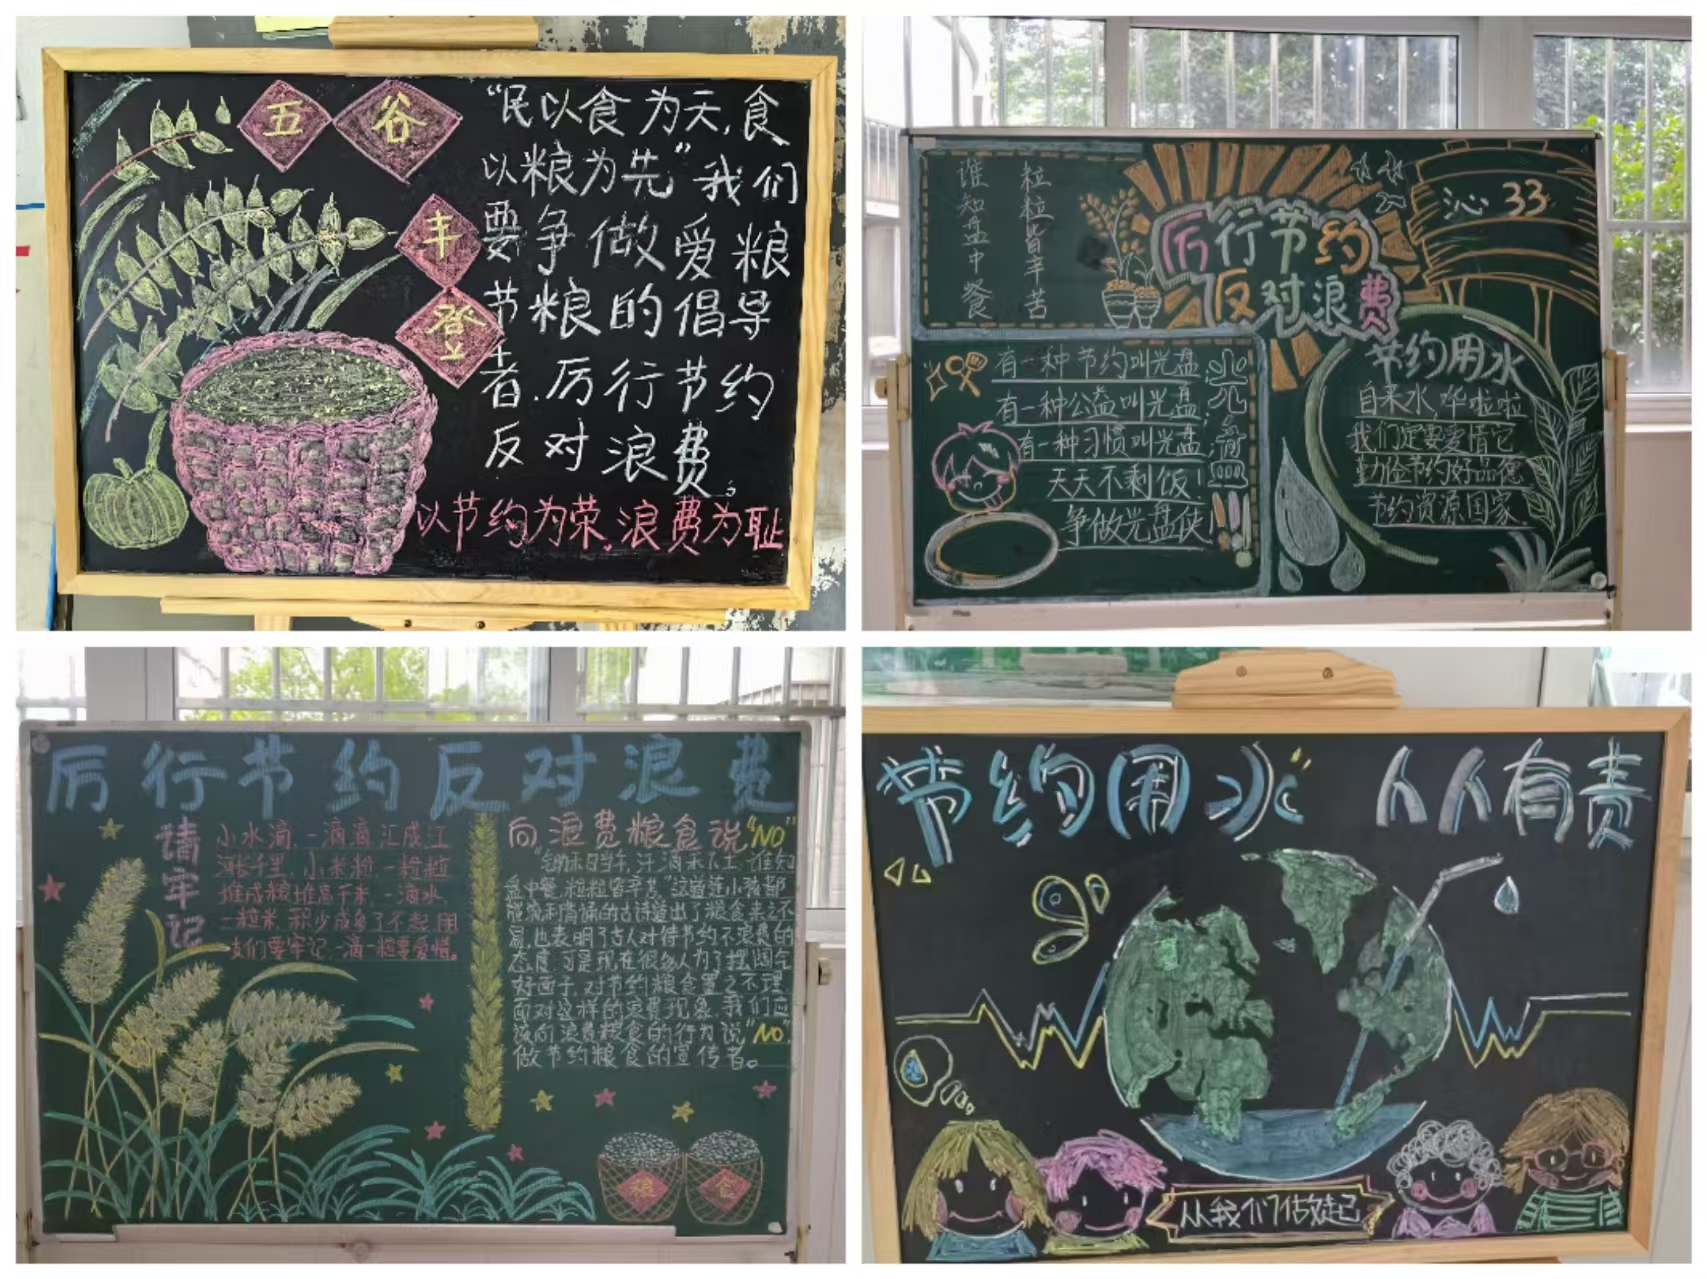 五谷
丰
登
“民以食为天,食
以粮为先”我们
要争做爱粮
节粮的倡导
者.厉行节约
反对浪费。
以节约为荣,浪费为耻
谁知盘中餐
粒粒皆辛苦
厉行节约
反对浪费
沁33
有一种节约叫光盘,
有一种公益叫光盘,
有一种习惯叫光盘,
天天不剩饭!
争做光盘侠!
光盘
节约用水
自来水,哗啦啦
我们定要爱惜它
勤俭节约好品德
节约资源国家
厉行节约反对浪费
请牢记
小水滴,一滴滴汇成江
河长千里,小米粒,一粒粒
堆成粮堆高千米,一滴水,
一粒米,积少成多了不起,朋
友们要牢记一滴一粒要爱惜。
向浪费粮食说“NO”
“锄禾日当午,汗滴禾下土,谁知
盘中餐,粒粒皆辛苦.”这首连小孩都
能流利背诵的古诗道出了粮食来之不
易,也表明了古人对待节约不浪费的
态度.可是现在很多人为了摆阔气
好面子,对节约粮食置之不理
面对这样的浪费现象,我们应
该向浪费粮食的行为说“NO”,
做节约粮食的宣传者。
粮食
节约用水 人人有责
从我们做起